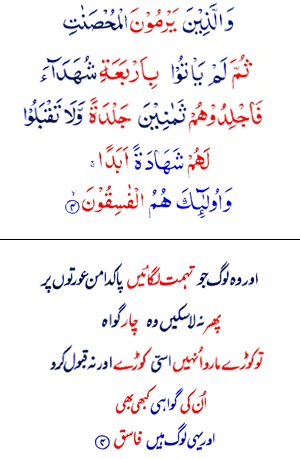 وَالَّذِيْنَ يَرْمُوْنَ الْمُحْصَنٰتِ
ثُمَّ لَمْ يَاْتُوْا بِاَرْبَعَةِ شُهَدَآءَ
فَاجْلِدُوْهُمْ ثَمٰنِيْنَ جَلْدَةً وَّلَا تَقْبَلُوْا
لَهُمْ شَهَادَةً اَبَدًا ۚ
وَاُولٰٓئِكَ هُمُ الْفٰسِقُوْنَ ۙ﴿۴﴾
اور وہ لوگ جو تہمت لگائیں پاکدامن عورتوں پر
پھر نہ لاسکیں وہ چار گواہ
تو کوڑے مارو اُنہیں اسّی کوڑے اور نہ قبول کرو
اُن کی گواہی کبھی بھی
اور یہی لوگ ہیں فاسق ﴿۴﴾